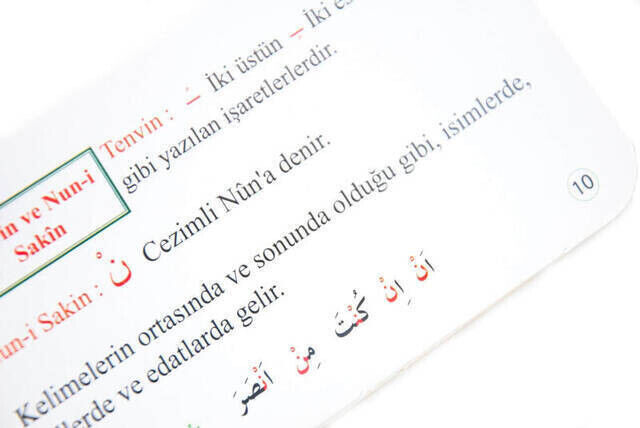 Tenvin : ـً İki üstün ـٍ İki
gibi yazılan işaretlerlerdir.
ve Nun-i
Sakîn
Sakin : نْ Cezimli Nûn'a denir.
Kelimelerin ortasında ve sonunda olduğu gibi, isimlerde,
ve edatlarda gelir.
اَنْ اِنْ كُنْتَ مِنْ اَنْصَرَ
10